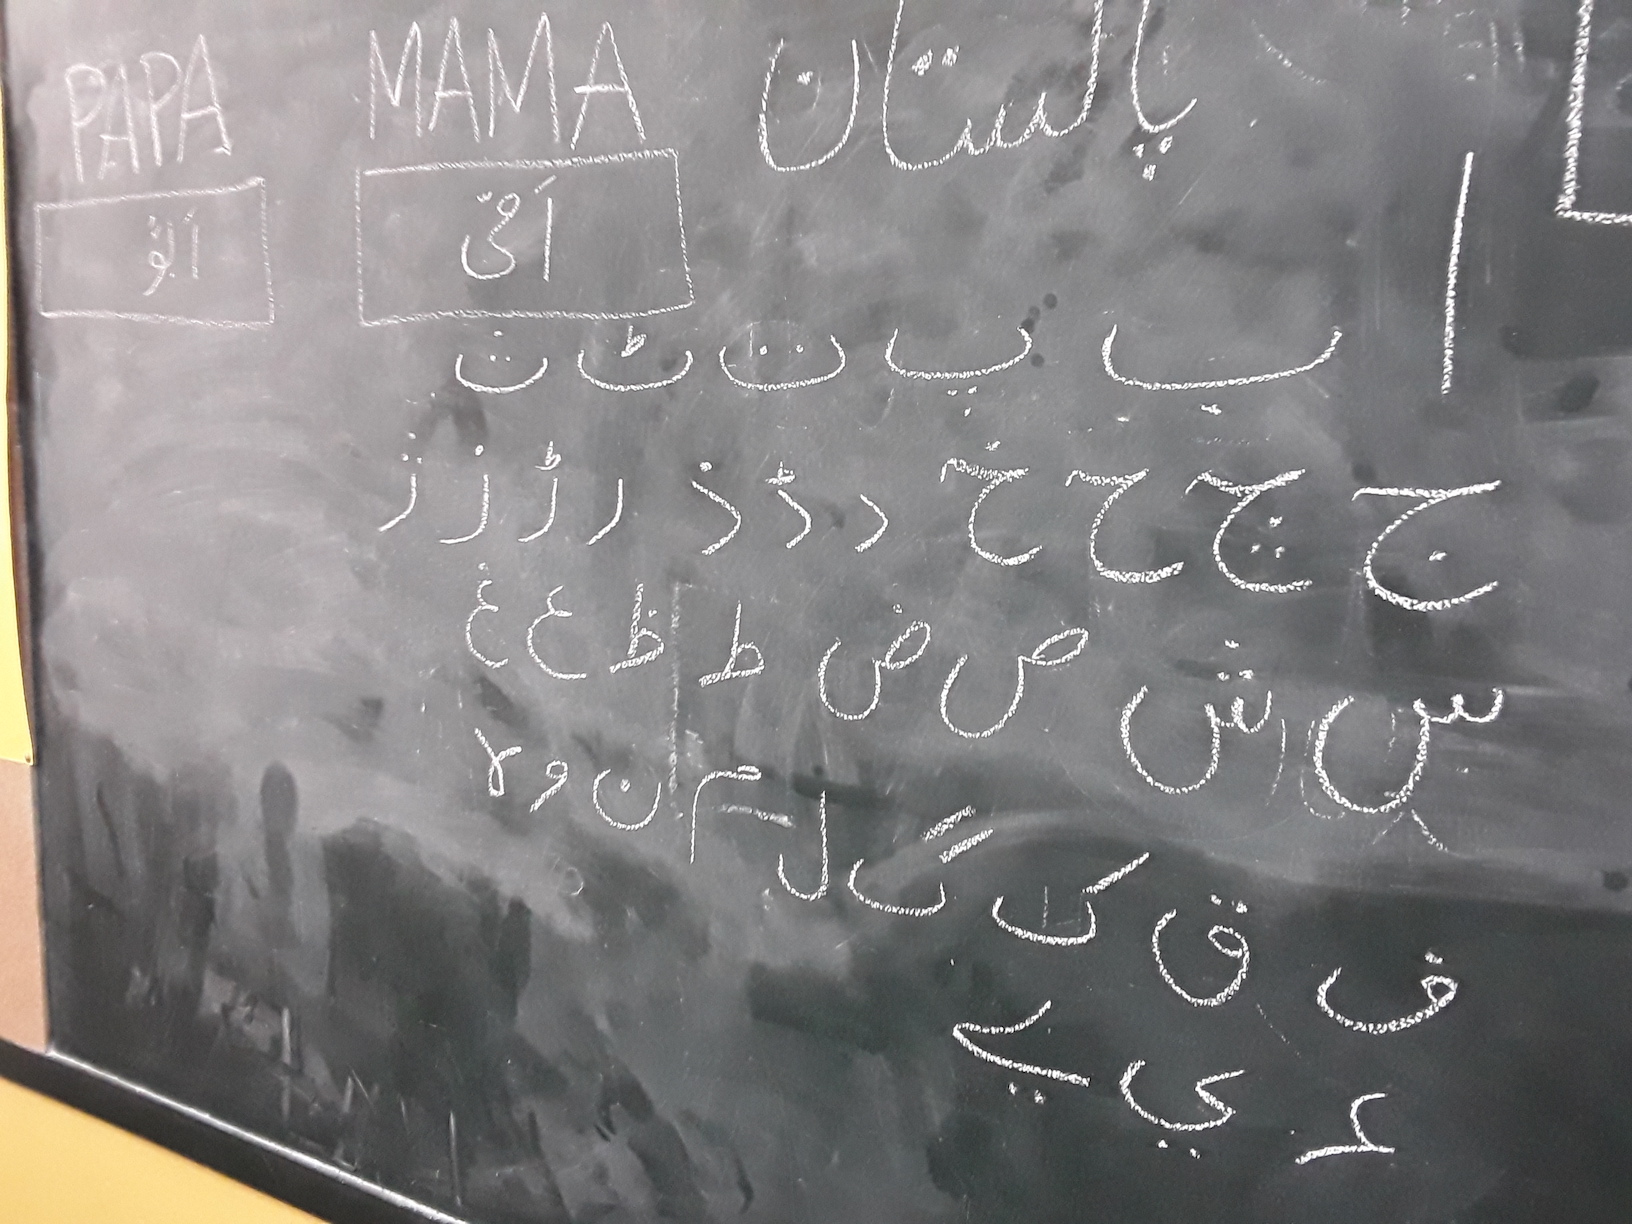 PAPA MAMA پاکستان
اَبّوُ اَمّی
ا ب پ ت ٹ ث
ج چ ح خ د ڈ ذ ر ڑ ز ژ
س ش ص ض ط ظ ع غ
ف ق ک گ ل م ن و لا
ء ي ے